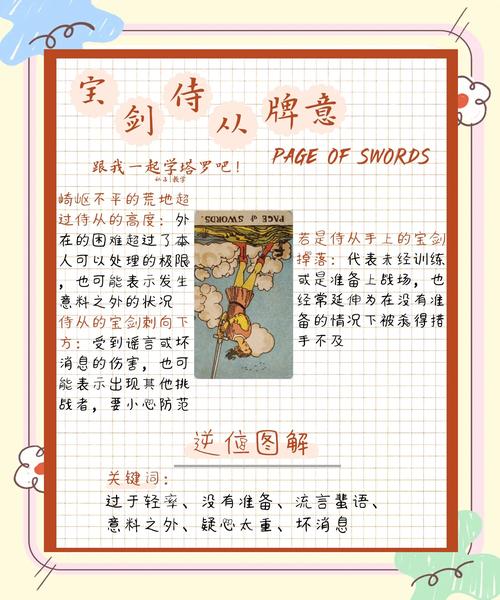 宝剑侍从牌意
PAGE OF SWORDS
跟我一起学塔罗吧！
崎岖不平的荒地超
过侍从的高度：外
在的困难超过了本
人可以处理的极限
，也可能表示发生
意料之外的状况
侍从的宝剑刺向下
方：受到谣言或坏
消息的伤害，也可
能表示出现其他挑
战者，要小心防范
PAGE of SWORDS.
若是侍从手上的宝剑
掉落：代表未经训练
或是准备上战场，也
经常延伸为在没有准
备的情况下被杀得措
手不及
逆位图解
关键词：
过于轻率、没有准备、流言蜚语、
意料之外、疑心太重、坏消息